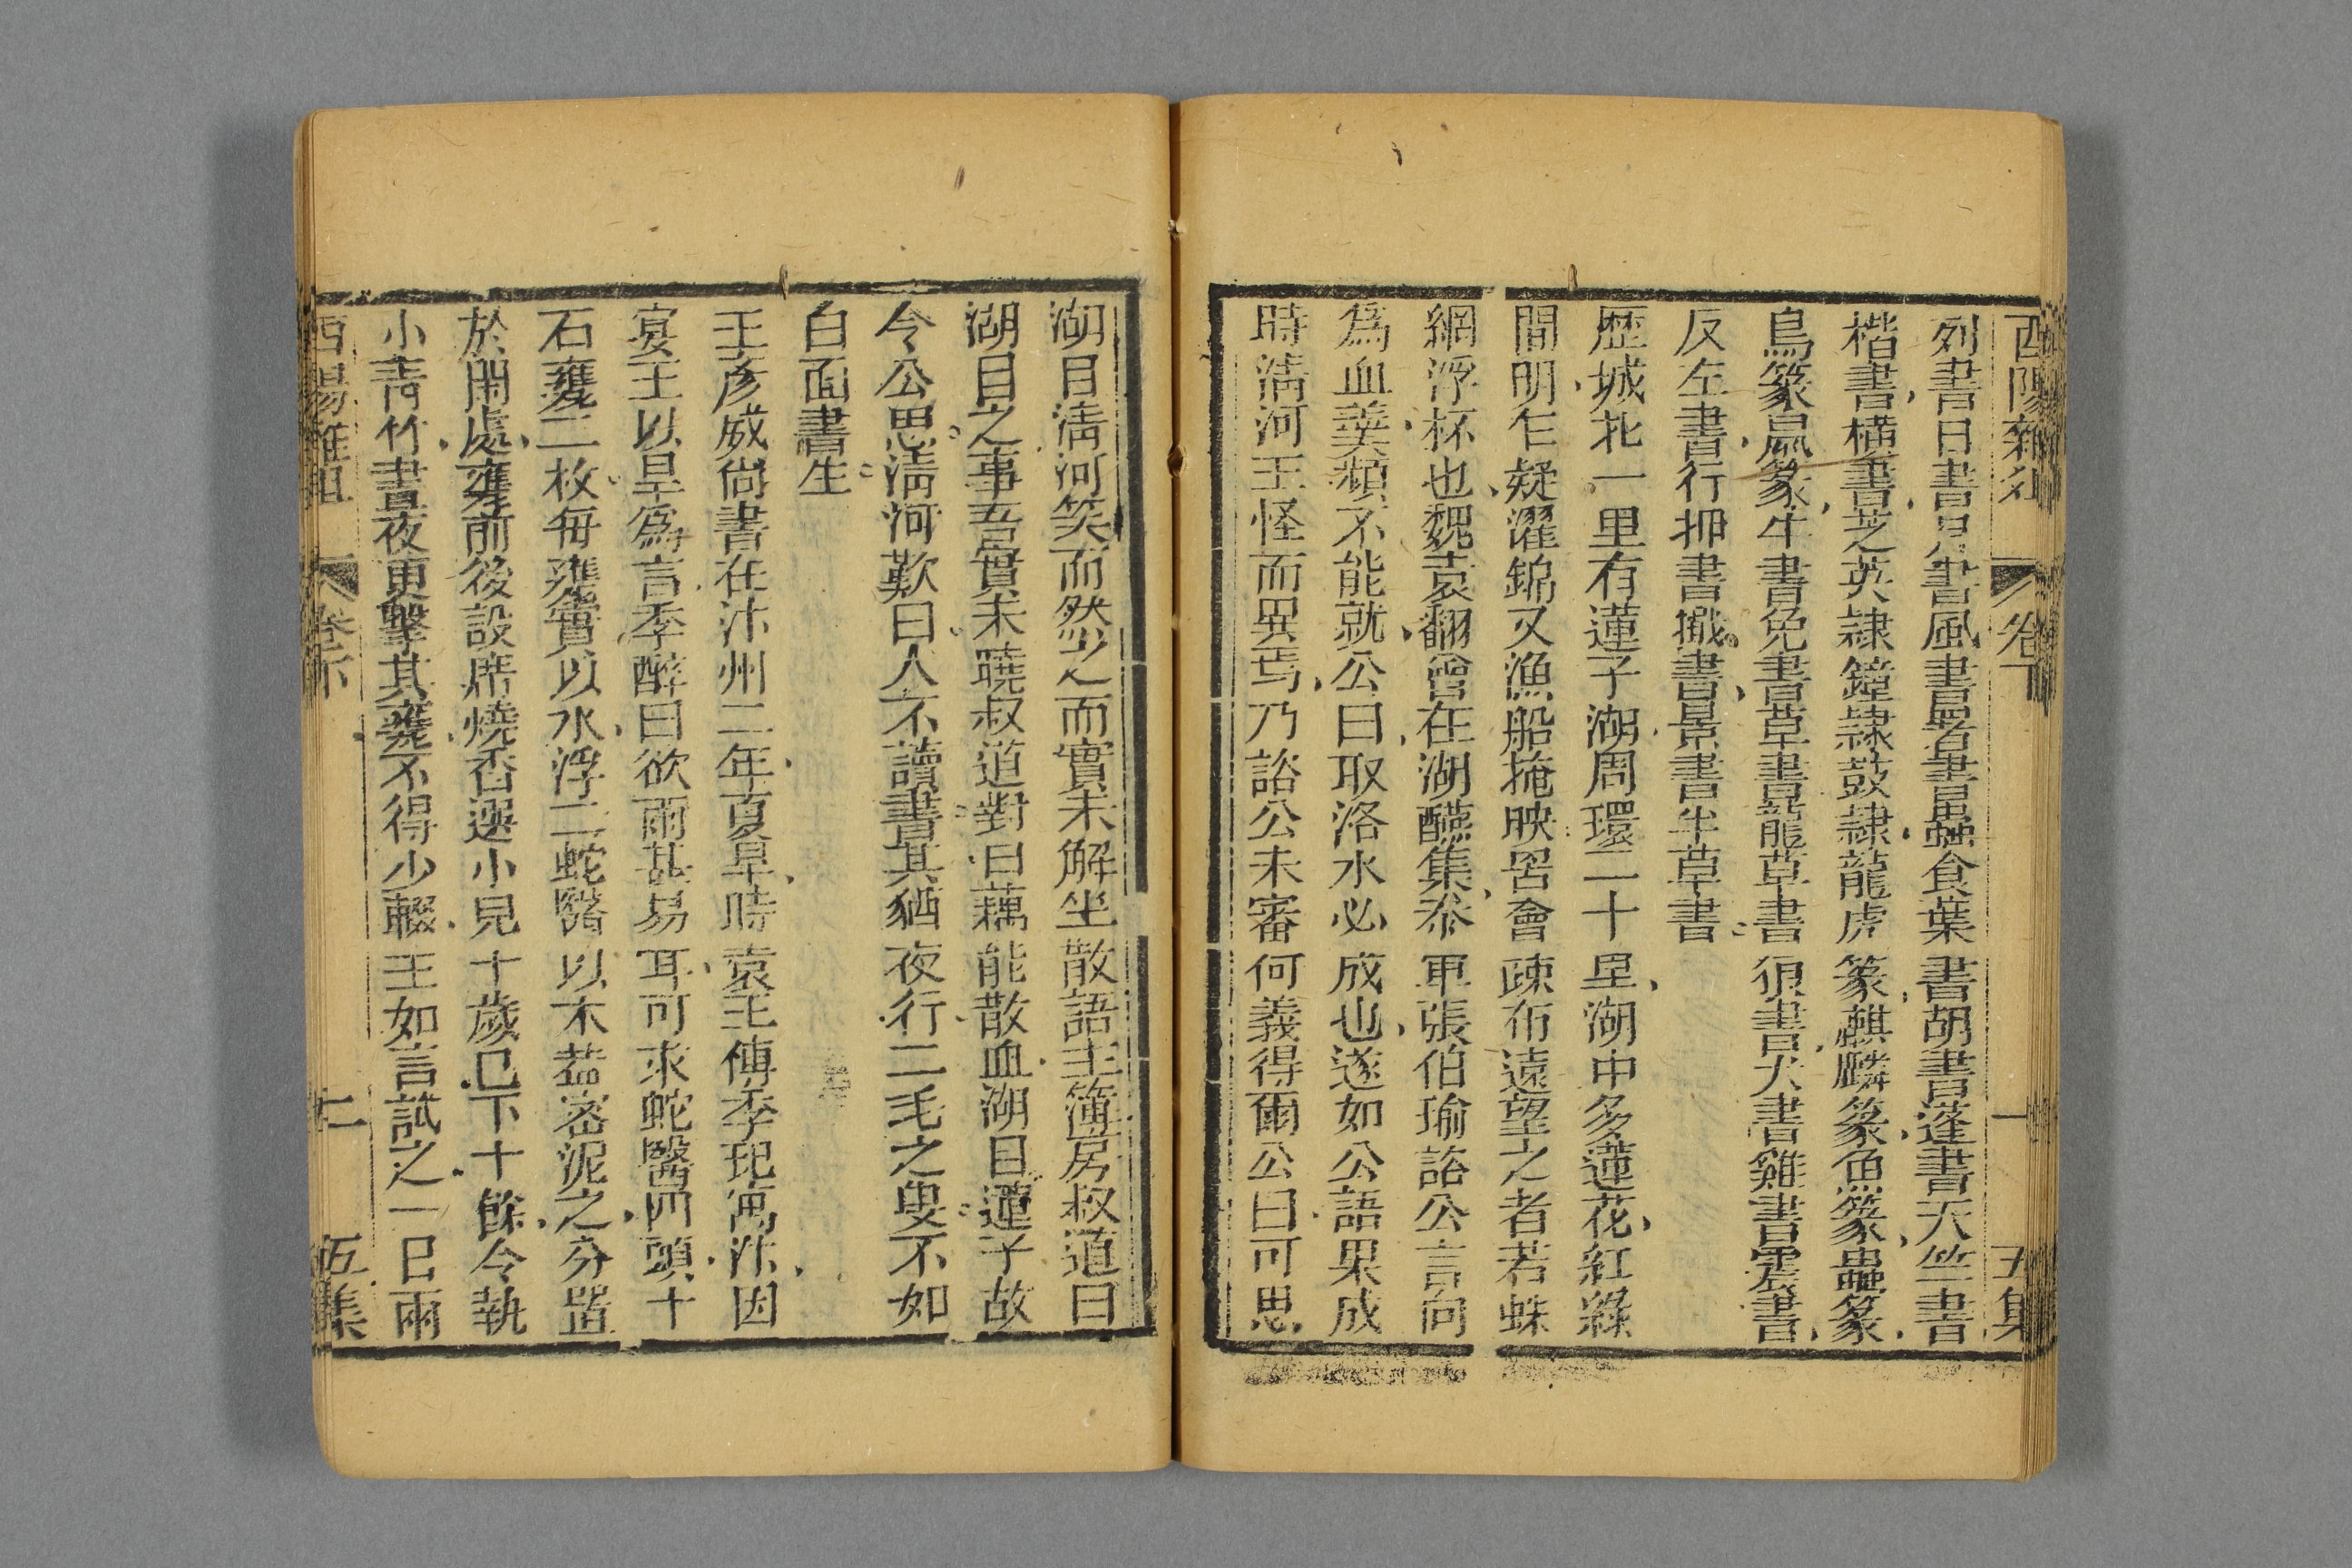 酉陽雜俎 卷下 一 五集
列書日書月書風書署書蟲食葉書胡書蓬書天竺書
楷書橫書芝英隷鐘隷鼓隷龍虎篆麒麟篆魚篆蟲篆
鳥篆鼠篆牛書兔書草書龍草書狼書犬書雞書震書
反左書行押書擑書景書半草書
歷城北一里有蓮子湖周環二十里湖中多蓮花紅綠
間明乍疑濯錦又漁船掩映罟罾疎布遠望之者若蛛
網浮杯也魏袁翻曾在湖醼集叅軍張伯瑜諮公言向
爲血羹頻不能就公曰取洛水必成也遂如公語果成
時淸河王怪而異焉乃諮公未審何義得爾公曰可思
湖目淸河笑而然之而實未解坐散語主簿房叔道曰
湖目之事吾實未曉叔道對曰藕能散血湖目蓮子故
令公思淸河歎曰人不讀書其猶夜行二毛之叟不如
白面書生
王彥威尙書在汴州二年夏旱時袁王傅季玘寓汴因
宴王以旱爲言季醉曰欲雨甚易耳可求蛇醫四頭十
石甕二枚每甕實以水浮二蛇醫以木葢密泥之分置
於閑處甕前後設席燒香選小兒十歲已下十餘令執
小靑竹晝夜更擊其甕不得少輟王如言試之一日雨
酉陽雜俎 卷下 二 五集